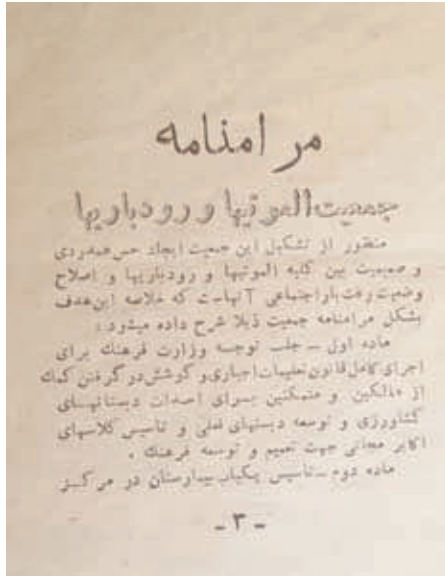 مرامنامه
جمعیت الموتیها و رودباریها
منظور از تشکیل این جمعیت ایجاد حس همدردی
و صمیمیت بین کلیه الموتیها و رودباریها و اصلاح
وضعیت رقت بار اجتماعی آنهاست که خلاصه این هدف
بشکل مرامنامه جمعیت ذیلا شرح داده میشود :
ماده اول ــ جلب توجه وزارت فرهنك برای
اجرای کامل قانون تعلیمات اجباری و کوشش در گرفتن کمك
از مالکین و متمکنین برای احداث دبستانهای
کشاورزی و توسعه دبستانهای فعلی و تاسیس کلاسهای
اکابر مجانی جهت تعمیم و توسعه فرهنك .
ماده دوم ــ تاسیس یکباب بیمارستان در مرکز
- ۳ -